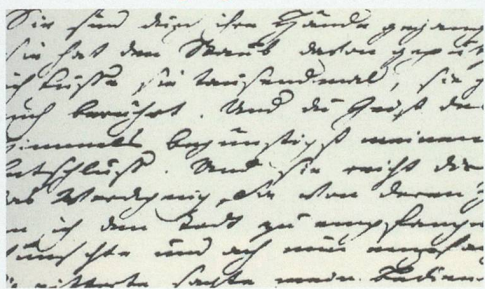 Sie sind durch ihre Hände gegang
sie hat den Staub davon geputz
ich küsse sie tausendmal, sie h
euch berührt. Und du Geist de
Himmels begünstigst meinen
ntschluss. Und sie reicht dir
as Werckzeug, Sie von deren H
n ich den Todt zu empfange
wünschte und ach nun empfan
ie zitterte sagte mein Bedien